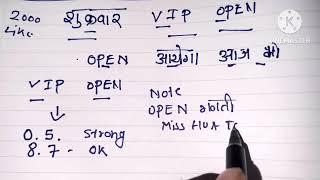 2000 शुक्रवार VIP OPEN
Like
OPEN आयेगा आज को
VIP OPEN
↓
0. 5. strong
8. 7 - OK
Note
OPEN
Miss HUA T
KINEMASTER